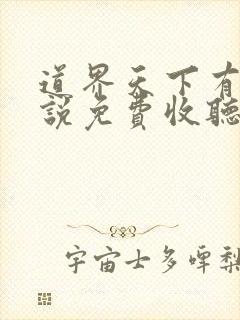 道界天下有
説免費收聽
宇宙士多啤梨